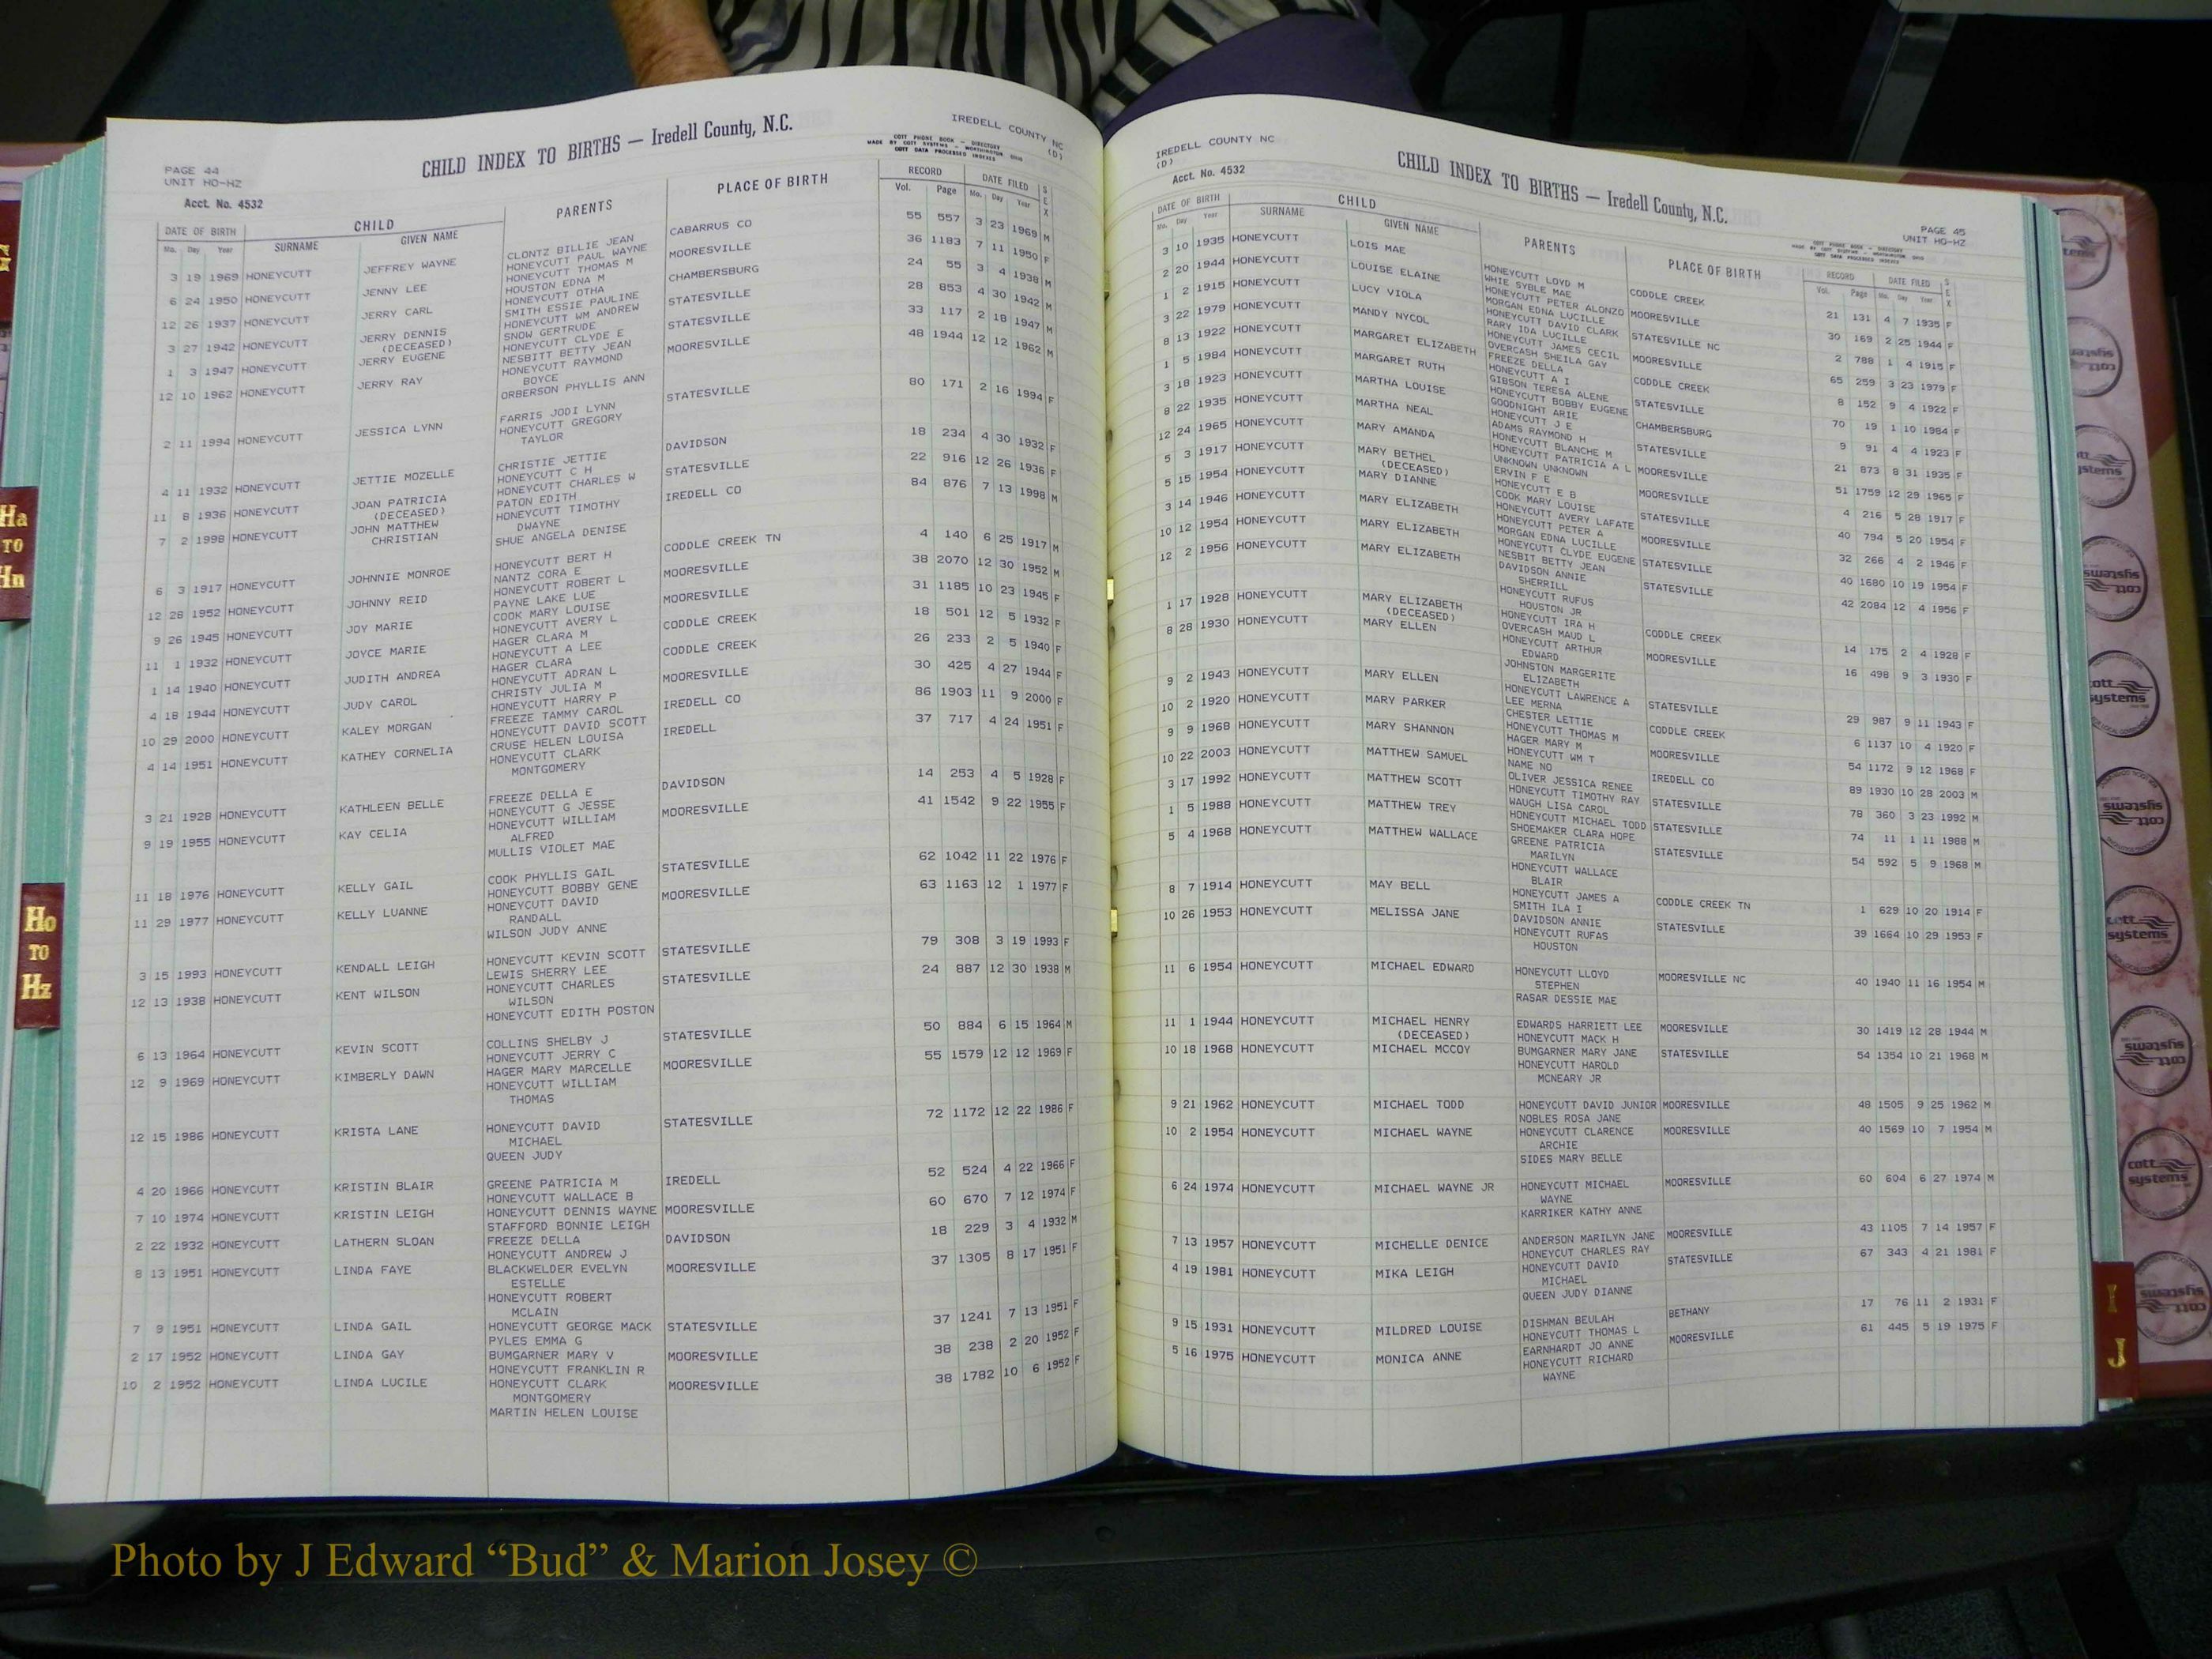 PAGE 44
UNIT HO-HZ
Acct. No. 4532
CHILD INDEX TO BIRTHS — Iredell County, N.C.
IREDELL COUNTY NC
(D)
COTT PHONE BOOK - DIRECTORY
MADE BY COTT SYSTEMS - WORTHINGTON OHIO
COTT DATA PROCESSED INDEXES
DATE OF BIRTH CHILD PARENTS PLACE OF BIRTH RECORD DATE FILED SEX
Mo. Day Year SURNAME GIVEN NAME Vol. Page Mo. Day Year
3 19 1969 HONEYCUTT JEFFREY WAYNE CLONTZ BILLIE JEAN CABARRUS CO 55 557 3 23 1969 M
HONEYCUTT PAUL WAYNE
6 24 1950 HONEYCUTT JENNY LEE HONEYCUTT THOMAS M MOORESVILLE 36 1183 7 11 1950 F
HOUSTON EDNA M
12 26 1937 HONEYCUTT JERRY CARL HONEYCUTT OTHA CHAMBERSBURG 24 55 3 4 1938 M
SMITH ESSIE PAULINE
3 27 1942 HONEYCUTT JERRY DENNIS HONEYCUTT WM ANDREW STATESVILLE 28 853 4 30 1942 M
(DECEASED) SNOW GERTRUDE
1 3 1947 HONEYCUTT JERRY EUGENE HONEYCUTT CLYDE E STATESVILLE 33 117 2 18 1947 M
NESBITT BETTY JEAN
12 10 1962 HONEYCUTT JERRY RAY HONEYCUTT RAYMOND MOORESVILLE 48 1944 12 12 1962 M
BOYCE
ORBERSON PHYLLIS ANN
2 11 1994 HONEYCUTT JESSICA LYNN FARRIS JODI LYNN STATESVILLE 80 171 2 16 1994 F
HONEYCUTT GREGORY
TAYLOR
4 11 1932 HONEYCUTT JETTIE MOZELLE CHRISTIE JETTIE DAVIDSON 18 234 4 30 1932 F
HONEYCUTT C H
11 8 1936 HONEYCUTT JOAN PATRICIA HONEYCUTT CHARLES W STATESVILLE 22 916 12 26 1936 F
(DECEASED) PATON EDITH
7 2 1998 HONEYCUTT JOHN MATTHEW HONEYCUTT TIMOTHY IREDELL CO 84 876 7 13 1998 M
CHRISTIAN DWAYNE
SHUE ANGELA DENISE
6 3 1917 HONEYCUTT JOHNNIE MONROE HONEYCUTT BERT H CODDLE CREEK TN 4 140 6 25 1917 M
NANTZ CORA E
12 28 1952 HONEYCUTT JOHNNY REID HONEYCUTT ROBERT L MOORESVILLE 38 2070 12 30 1952 M
PAYNE LAKE LUE
9 26 1945 HONEYCUTT JOY MARIE COOK MARY LOUISE MOORESVILLE 31 1185 10 23 1945 F
HONEYCUTT AVERY L
11 1 1932 HONEYCUTT JOYCE MARIE HAGER CLARA M CODDLE CREEK 18 501 12 5 1932 F
HONEYCUTT A LEE
1 14 1940 HONEYCUTT JUDITH ANDREA HAGER CLARA CODDLE CREEK 26 233 2 5 1940 F
HONEYCUTT ADRAN L
4 18 1944 HONEYCUTT JUDY CAROL CHRISTY JULIA M MOORESVILLE 30 425 4 27 1944 F
HONEYCUTT HARRY P
10 29 2000 HONEYCUTT KALEY MORGAN FREEZE TAMMY CAROL IREDELL CO 86 1903 11 9 2000 F
HONEYCUTT DAVID SCOTT
4 14 1951 HONEYCUTT KATHEY CORNELIA CRUSE HELEN LOUISA IREDELL 37 717 4 24 1951 F
HONEYCUTT CLARK
MONTGOMERY
3 21 1928 HONEYCUTT KATHLEEN BELLE FREEZE DELLA E DAVIDSON 14 253 4 5 1928 F
HONEYCUTT G JESSE
9 19 1955 HONEYCUTT KAY CELIA HONEYCUTT WILLIAM MOORESVILLE 41 1542 9 22 1955 F
ALFRED
MULLIS VIOLET MAE
11 18 1976 HONEYCUTT KELLY GAIL COOK PHYLLIS GAIL STATESVILLE 62 1042 11 22 1976 F
HONEYCUTT BOBBY GENE
11 29 1977 HONEYCUTT KELLY LUANNE HONEYCUTT DAVID MOORESVILLE 63 1163 12 1 1977 F
RANDALL
WILSON JUDY ANNE
3 15 1993 HONEYCUTT KENDALL LEIGH HONEYCUTT KEVIN SCOTT STATESVILLE 79 308 3 19 1993 F
LEWIS SHERRY LEE
12 13 1938 HONEYCUTT KENT WILSON HONEYCUTT CHARLES STATESVILLE 24 887 12 30 1938 M
WILSON
HONEYCUTT EDITH POSTON
6 13 1964 HONEYCUTT KEVIN SCOTT COLLINS SHELBY J STATESVILLE 50 884 6 15 1964 M
HONEYCUTT JERRY C
12 9 1969 HONEYCUTT KIMBERLY DAWN HAGER MARY MARCELLE MOORESVILLE 55 1579 12 12 1969 F
HONEYCUTT WILLIAM
THOMAS
12 15 1986 HONEYCUTT KRISTA LANE HONEYCUTT DAVID STATESVILLE 72 1172 12 22 1986 F
MICHAEL
QUEEN JUDY
4 20 1966 HONEYCUTT KRISTIN BLAIR GREENE PATRICIA M IREDELL 52 524 4 22 1966 F
HONEYCUTT WALLACE B
7 10 1974 HONEYCUTT KRISTIN LEIGH HONEYCUTT DENNIS WAYNE MOORESVILLE 60 670 7 12 1974 F
STAFFORD BONNIE LEIGH
2 22 1932 HONEYCUTT LATHERN SLOAN FREEZE DELLA DAVIDSON 18 229 3 4 1932 M
HONEYCUTT ANDREW J
8 13 1951 HONEYCUTT LINDA FAYE BLACKWELDER EVELYN MOORESVILLE 37 1305 8 17 1951 F
ESTELLE
HONEYCUTT ROBERT
MCLAIN
7 9 1951 HONEYCUTT LINDA GAIL HONEYCUTT GEORGE MACK STATESVILLE 37 1241 7 13 1951 F
PYLES EMMA G
2 17 1952 HONEYCUTT LINDA GAY BUMGARNER MARY V MOORESVILLE 38 238 2 20 1952 F
HONEYCUTT FRANKLIN R
10 2 1952 HONEYCUTT LINDA LUCILE HONEYCUTT CLARK MOORESVILLE 38 1782 10 6 1952 F
MONTGOMERY
MARTIN HELEN LOUISE
IREDELL COUNTY NC
(D)
Acct. No. 4532
CHILD INDEX TO BIRTHS — Iredell County, N.C.
PAGE 45
UNIT HO-HZ
COTT PHONE BOOK - DIRECTORY
MADE BY COTT SYSTEMS - WORTHINGTON OHIO
COTT DATA PROCESSED INDEXES
DATE OF BIRTH CHILD PARENTS PLACE OF BIRTH RECORD DATE FILED SEX
Mo. Day Year SURNAME GIVEN NAME Vol. Page Mo. Day Year
3 10 1935 HONEYCUTT LOIS MAE HONEYCUTT LOYD M CODDLE CREEK 21 131 4 7 1935 F
WHIE SYBLE MAE
2 20 1944 HONEYCUTT LOUISE ELAINE HONEYCUTT PETER ALONZO MOORESVILLE 30 169 2 25 1944 F
MORGAN EDNA LUCILLE
1 2 1915 HONEYCUTT LUCY VIOLA HONEYCUTT DAVID CLARK STATESVILLE NC 2 788 1 4 1915 F
RARY IDA LUCILLE
3 22 1979 HONEYCUTT MANDY NYCOL HONEYCUTT JAMES CECIL MOORESVILLE 65 259 3 23 1979 F
OVERCASH SHEILA GAY
8 13 1922 HONEYCUTT MARGARET ELIZABETH FREEZE DELLA CODDLE CREEK 8 152 9 4 1922 F
HONEYCUTT A I
1 5 1984 HONEYCUTT MARGARET RUTH GIBSON TERESA ALENE STATESVILLE 70 19 1 10 1984 F
HONEYCUTT BOBBY EUGENE
3 18 1923 HONEYCUTT MARTHA LOUISE GOODNIGHT ARIE CHAMBERSBURG 9 91 4 4 1923 F
HONEYCUTT J E
8 22 1935 HONEYCUTT MARTHA NEAL ADAMS RAYMOND H STATESVILLE 21 873 8 31 1935 F
HONEYCUTT BLANCHE M
12 24 1965 HONEYCUTT MARY AMANDA HONEYCUTT PATRICIA A L MOORESVILLE 51 1759 12 29 1965 F
UNKNOWN UNKNOWN
5 3 1917 HONEYCUTT MARY BETHEL ERVIN F E MOORESVILLE 4 216 5 28 1917 F
(DECEASED) HONEYCUTT E B
5 15 1954 HONEYCUTT MARY DIANNE COOK MARY LOUISE STATESVILLE 40 794 5 20 1954 F
HONEYCUTT AVERY LAFATE
3 14 1946 HONEYCUTT MARY ELIZABETH HONEYCUTT PETER A MOORESVILLE 32 266 4 2 1946 F
MORGAN EDNA LUCILLE
10 12 1954 HONEYCUTT MARY ELIZABETH HONEYCUTT CLYDE EUGENE STATESVILLE 40 1680 10 19 1954 F
NESBIT BETTY JEAN
12 2 1956 HONEYCUTT MARY ELIZABETH DAVIDSON ANNIE STATESVILLE 42 2084 12 4 1956 F
SHERRILL
HONEYCUTT RUFUS
HOUSTON JR
1 17 1928 HONEYCUTT MARY ELIZABETH HONEYCUTT IRA H CODDLE CREEK 14 175 2 4 1928 F
(DECEASED) OVERCASH MAUD L
8 28 1930 HONEYCUTT MARY ELLEN HONEYCUTT ARTHUR MOORESVILLE 16 498 9 3 1930 F
EDWARD
JOHNSTON MARGERITE
ELIZABETH
9 2 1943 HONEYCUTT MARY ELLEN HONEYCUTT LAWRENCE A STATESVILLE 29 987 9 11 1943 F
LEE MERNA
10 2 1920 HONEYCUTT MARY PARKER CHESTER LETTIE CODDLE CREEK 6 1137 10 4 1920 F
HONEYCUTT THOMAS M
9 9 1968 HONEYCUTT MARY SHANNON HAGER MARY M MOORESVILLE 54 1172 9 12 1968 F
HONEYCUTT WM T
10 22 2003 HONEYCUTT MATTHEW SAMUEL NAME NO IREDELL CO 89 1930 10 28 2003 M
OLIVER JESSICA RENEE
3 17 1992 HONEYCUTT MATTHEW SCOTT HONEYCUTT TIMOTHY RAY STATESVILLE 78 360 3 23 1992 M
WAUGH LISA CAROL
1 5 1988 HONEYCUTT MATTHEW TREY HONEYCUTT MICHAEL TODD STATESVILLE 74 11 1 11 1988 M
SHOEMAKER CLARA HOPE
5 4 1968 HONEYCUTT MATTHEW WALLACE GREENE PATRICIA STATESVILLE 54 592 5 9 1968 M
MARILYN
HONEYCUTT WALLACE
BLAIR
8 7 1914 HONEYCUTT MAY BELL HONEYCUTT JAMES A CODDLE CREEK TN 1 629 10 20 1914 F
SMITH ILA I
10 26 1953 HONEYCUTT MELISSA JANE DAVIDSON ANNIE STATESVILLE 39 1664 10 29 1953 F
HONEYCUTT RUFAS
HOUSTON
11 6 1954 HONEYCUTT MICHAEL EDWARD HONEYCUTT LLOYD MOORESVILLE NC 40 1940 11 16 1954 M
STEPHEN
RASAR DESSIE MAE
11 1 1944 HONEYCUTT MICHAEL HENRY EDWARDS HARRIETT LEE MOORESVILLE 30 1419 12 28 1944 M
(DECEASED) HONEYCUTT MACK H
10 18 1968 HONEYCUTT MICHAEL MCCOY BUMGARNER MARY JANE STATESVILLE 54 1354 10 21 1968 M
HONEYCUTT HAROLD
MCNEARY JR
9 21 1962 HONEYCUTT MICHAEL TODD HONEYCUTT DAVID JUNIOR MOORESVILLE 48 1505 9 25 1962 M
NOBLES ROSA JANE
10 2 1954 HONEYCUTT MICHAEL WAYNE HONEYCUTT CLARENCE MOORESVILLE 40 1569 10 7 1954 M
ARCHIE
SIDES MARY BELLE
6 24 1974 HONEYCUTT MICHAEL WAYNE JR HONEYCUTT MICHAEL MOORESVILLE 60 604 6 27 1974 M
WAYNE
KARRIKER KATHY ANNE
7 13 1957 HONEYCUTT MICHELLE DENICE ANDERSON MARILYN JANE MOORESVILLE 43 1105 7 14 1957 F
HONEYCUT CHARLES RAY
4 19 1981 HONEYCUTT MIKA LEIGH HONEYCUTT DAVID STATESVILLE 67 343 4 21 1981 F
MICHAEL
QUEEN JUDY DIANNE
9 15 1931 HONEYCUTT MILDRED LOUISE DISHMAN BEULAH BETHANY 17 76 11 2 1931 F
HONEYCUTT THOMAS L
5 16 1975 HONEYCUTT MONICA ANNE EARNHARDT JO ANNE MOORESVILLE 61 445 5 19 1975 F
HONEYCUTT RICHARD
WAYNE
G
Ha
TO
Hn
Ho
TO
Hz
I
J
cott
systems
Photo by J Edward “Bud” & Marion Josey ©